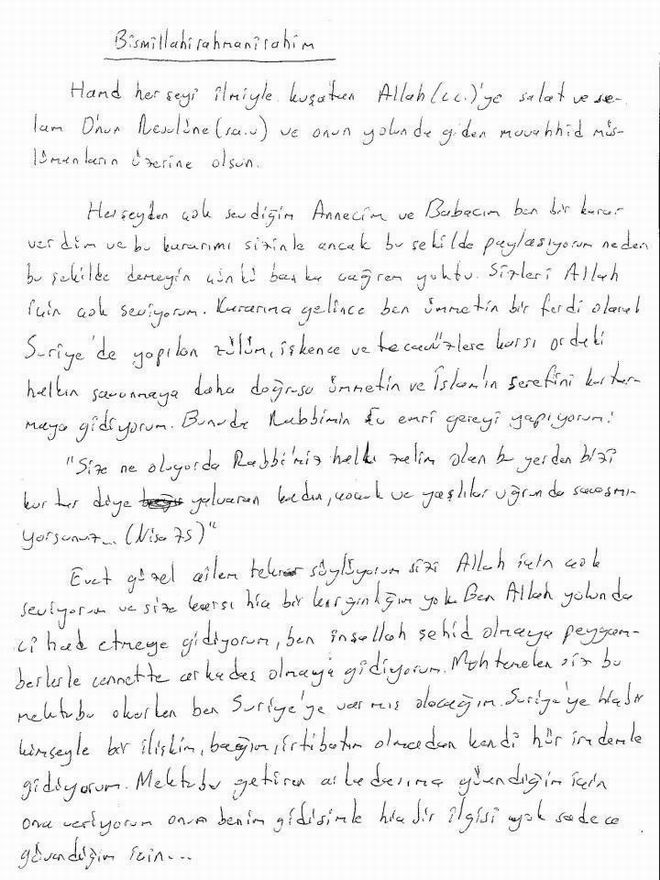 Bismillahirahmanirahim
Hamd herseyi ilmiyle kuşatan Allah(c.c.)'ye salat ve se-
lam O'nun Resulüne(sa.v) ve onun yolunda giden muvahhid müs-
lümanların üzerine olsun.
Herseyden çok sevdiğim Annecim ve Babacım ben bir karar
verdim ve bu kararımı sizinle ancak bu sekilde paylasıyorum neden
bu şekilde demeyin çünkü baska çağrem yoktu. Sizleri Allah
için çok seviyorum. Kararıma gelince ben ümmetin bir ferdi olarak
Suriye'de yapılan zülüm, işkence ve tecavüzlere karsı ordaki
halkın savunmaya daha doğrusu ümmetin ve İslam'ın şerefini kurtar-
maya gidiyorum. Bunuda Rabbimin şu emri gereyi yapıyorum:
"Size ne oluyorda Rabbi'miz halkı zalim olan bu yerden bizi
kurtar diye yalvaran kadın, çocuk ve yaşlılar uğrunda savasmı-
yorsunuz... (Nisa 75)"
Evet güzel ailem tekrar söylüyorum sizi Allah için çok
seviyorum ve size karsı hiç bir kırgınlığım yok. Ben Allah yolunda
cihad etmeye gidiyorum, ben inşallah şehid olmaya peygam-
berlerle cennette arkadaş olmaya gidiyorum. Muhtemelen siz bu
mektubu okurken ben Suriye'ye varmış olacağım. Suriye'ye hiçbir
kimseyle bir ilişkim, bağım, irtibatım olmadan kendi hür irademle
gidiyorum. Mektubu getiren arkadasıma güvendiğim için
ona veriyorum onun benim gidişimle hiçbir ilgisi yok sadece
güvendiğim için...